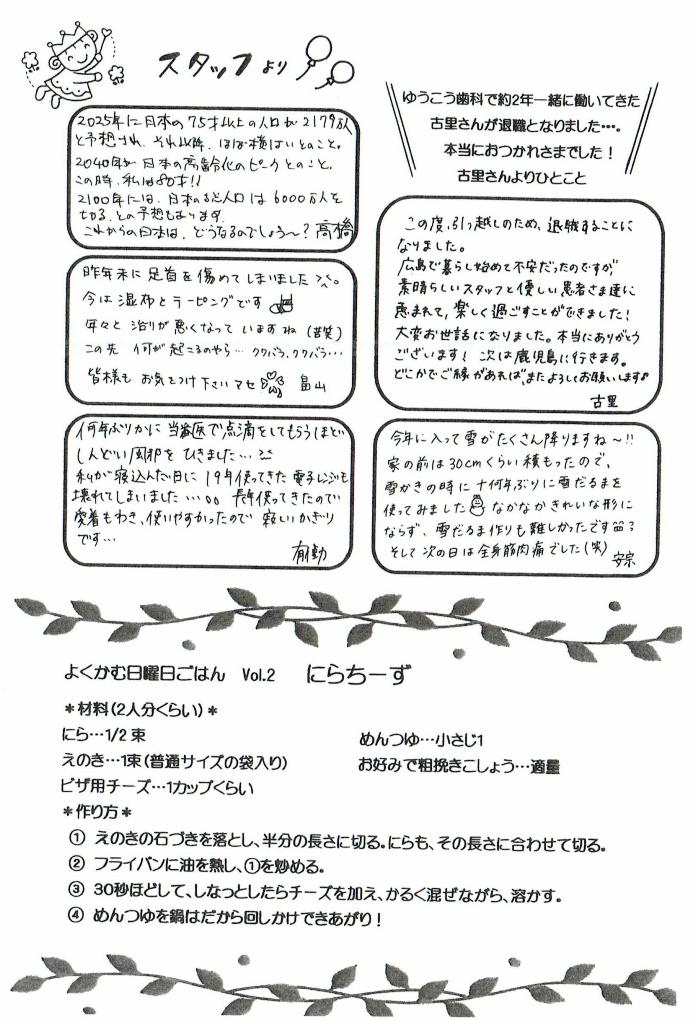 スタッフより
2025年に日本の75才以上の人口が2179万人
と予想され、それ以降、ほぼ横ばいとのこと。
2040年が日本の高齢化のピークとのこと。
この時、私は80才!!
2100年には、日本の総人口は6000万人を
切る、との予想もあります。
これからの日本は、どうなるのでしょう〜? 高橋
昨年末に足首を傷めてしまいました
今は湿布とテーピングです
年々と治りが悪くなっていますね（苦笑）
この先 何が起こるのやら… クワバラ、クワバラ…
皆様も お気をつけ下さいマセ 畠山
何年ぶりかに当番医で点滴をしてもらうほど
しんどい風邪をひきました…
私が寝込んだ日に19年使ってきた電子レンジも
壊れてしまいました…。。 長年使ってきたので
愛着もわき、使いやすかったので寂しいかぎり
です… 有動
ゆうこう歯科で約2年一緒に働いてきた
古里さんが退職となりました…。
本当におつかれさまでした！
古里さんよりひとこと
この度、引っ越しのため、退職することに
なりました。
広島で暮らし始めて不安だったのですが
素晴らしいスタッフと優しい患者さま達に
恵まれて、楽しく過ごすことができました！
大変お世話になりました。本当にありがとう
ございます！ 次は鹿児島に行きます。
どこかでご縁があれば、またよろしくお願いします♪
古里
今年に入って雪がたくさん降りますね〜!!
家の前は30cmくらい積もったので、
雪かきの時に十何年ぶりに雪だるまを
使ってみました なかなかきれいな形に
ならず、雪だるま作りも難しかったです
そして次の日は全身筋肉痛でした（笑） 安宗
よくかむ日曜日ごはん Vol.2 にらちーず
＊材料（2人分くらい）＊
にら…1/2束 めんつゆ…小さじ1
えのき…1束（普通サイズの袋入り） お好みで粗挽きこしょう…適量
ピザ用チーズ…1カップくらい
＊作り方＊
① えのきの石づきを落とし、半分の長さに切る。にらも、その長さに合わせて切る。
② フライパンに油を熱し、①を炒める。
③ 30秒ほどして、しなっとしたらチーズを加え、かるく混ぜながら、溶かす。
④ めんつゆを鍋はだから回しかけできあがり！